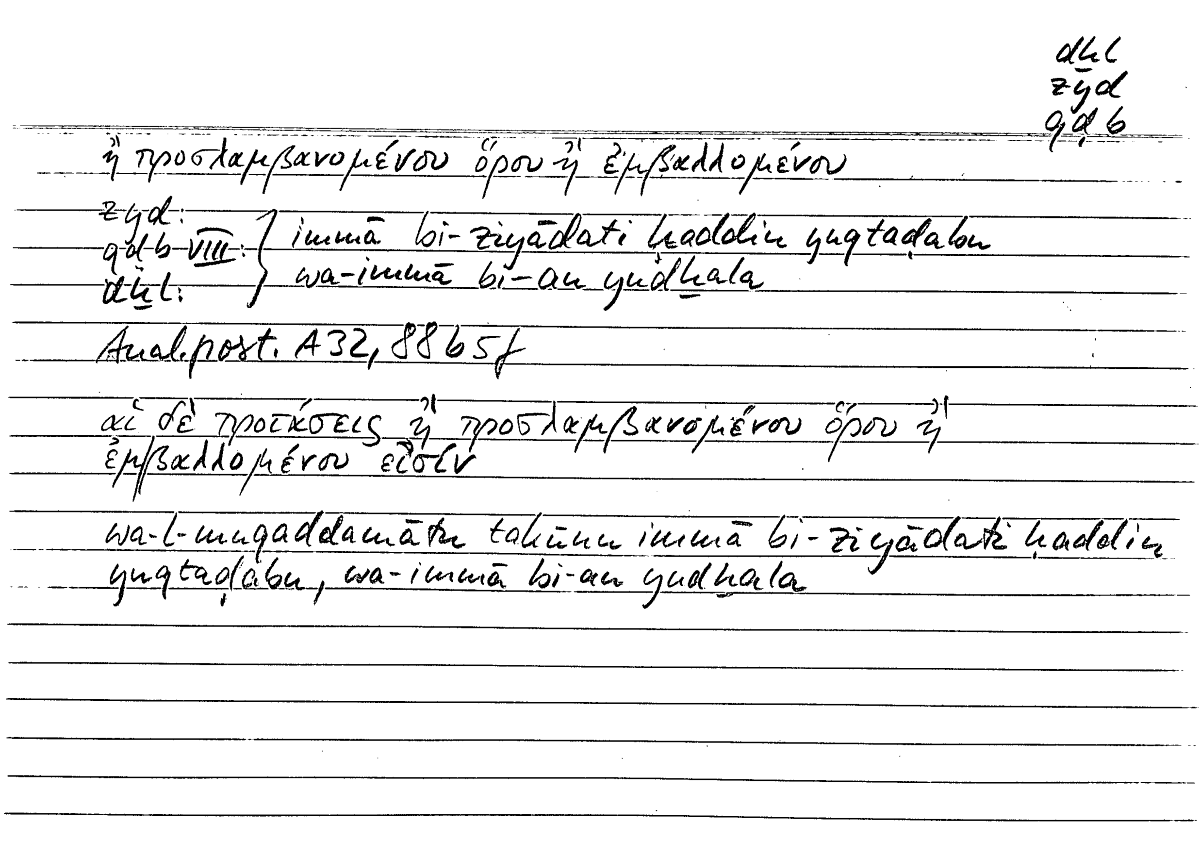 dḫl
zyd
qḍb
ἢ προσλαμβανομένου ὅρου ἢ ἐμβαλλομένου
zyd:
qḍb VIII:
dḫl:
immā bi-ziyādati ḥaddin yuqtaḍabu
wa-immā bi-an yudḫala
Anal.post. A 32, 88 b 5 f
αἱ δὲ προτάσεις ἢ προσλαμβανομένου ὅρου ἢ
ἐμβαλλομένου εἰσίν
wa-l-muqaddamātu takūnu immā bi-ziyādati ḥaddin
yuqtaḍabu, wa-immā bi-an yudḫala